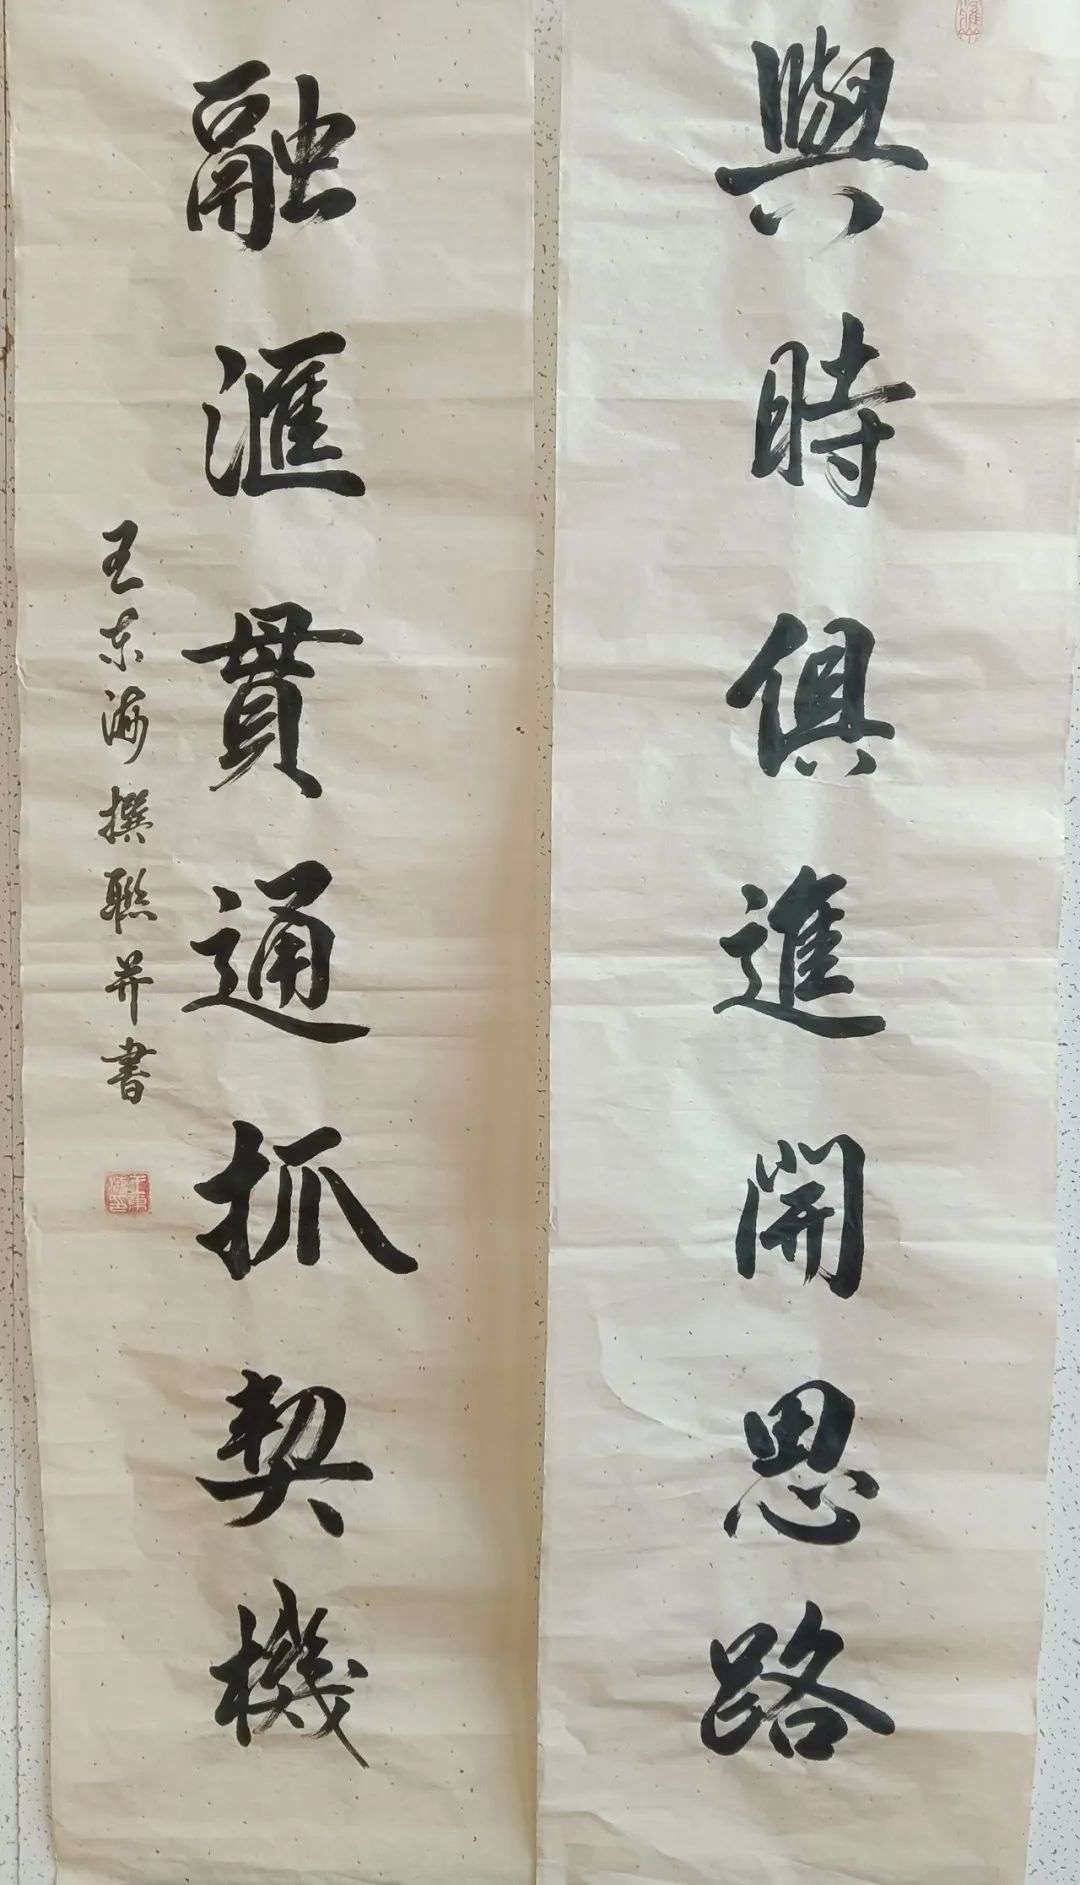 與時俱進開思路
融滙貫通抓契機
王东海撰聯并書